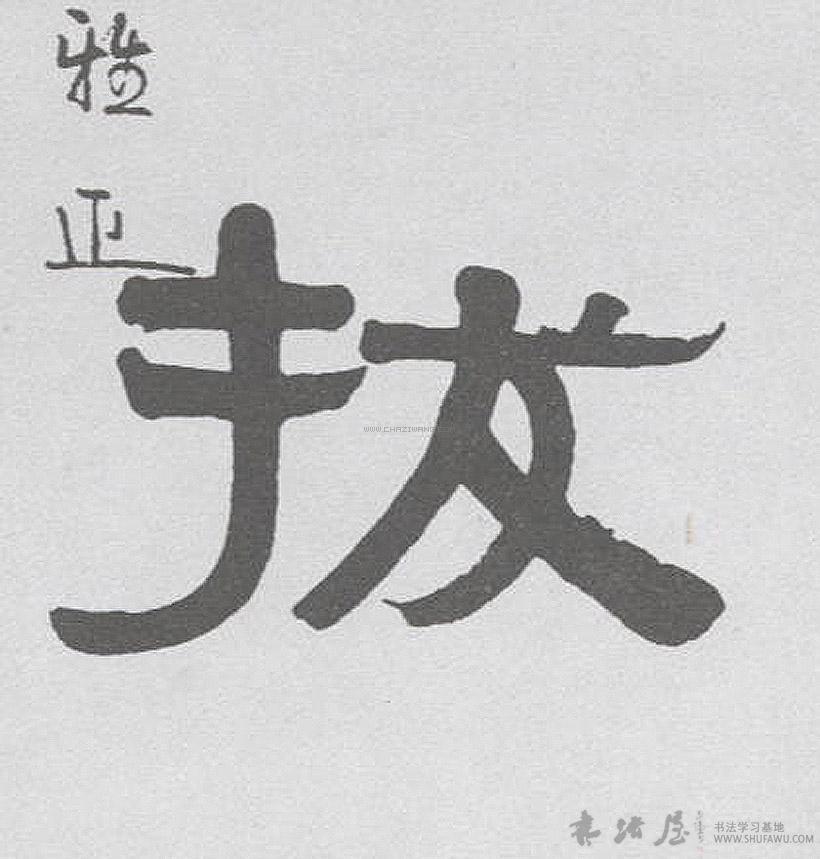 雅正
拔
WWW.CHAZIWANG
书法屋
书法学习基地
WWW.SHUFAWU.COM